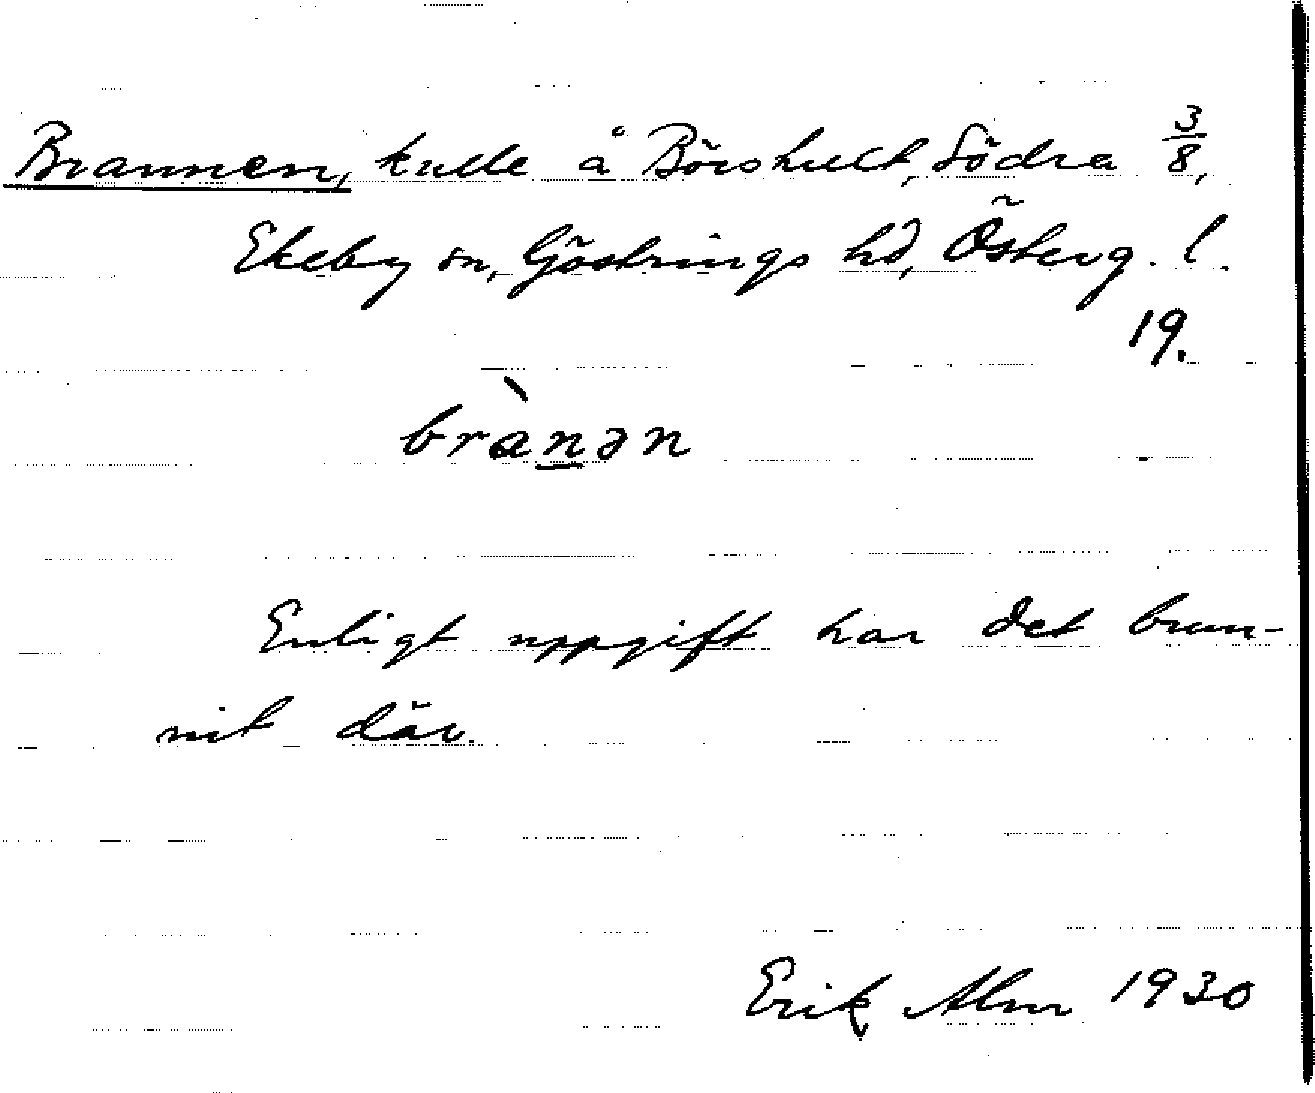 Brannen, kulle å Börshult, Södra 3/8,
Ekeby sn, Göstrings hd, Österg. l.
19.
brànən
Enligt uppgift har det brun-
nit där.
Erik Alm 1930